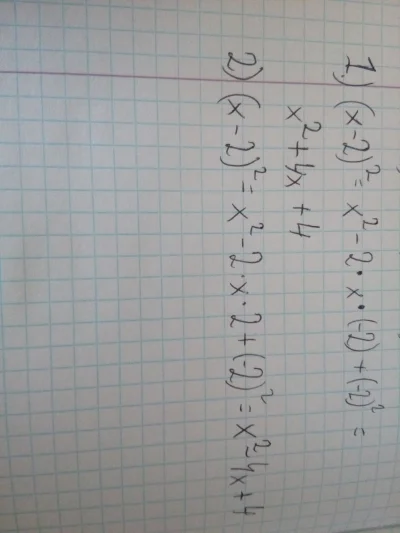 1.) (x-2)² = x² - 2 · x · (-2) + (-2)² =
x² + 4x + 4
2) (x-2)² = x² - 2 · x · 2 + (-2)² = x² - 4x + 4